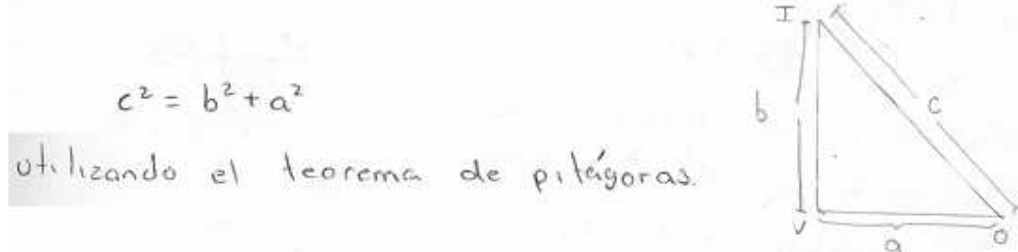 c² = b² + a²
utilizando el teorema de pitágoras.
I
b
c
V
a
O